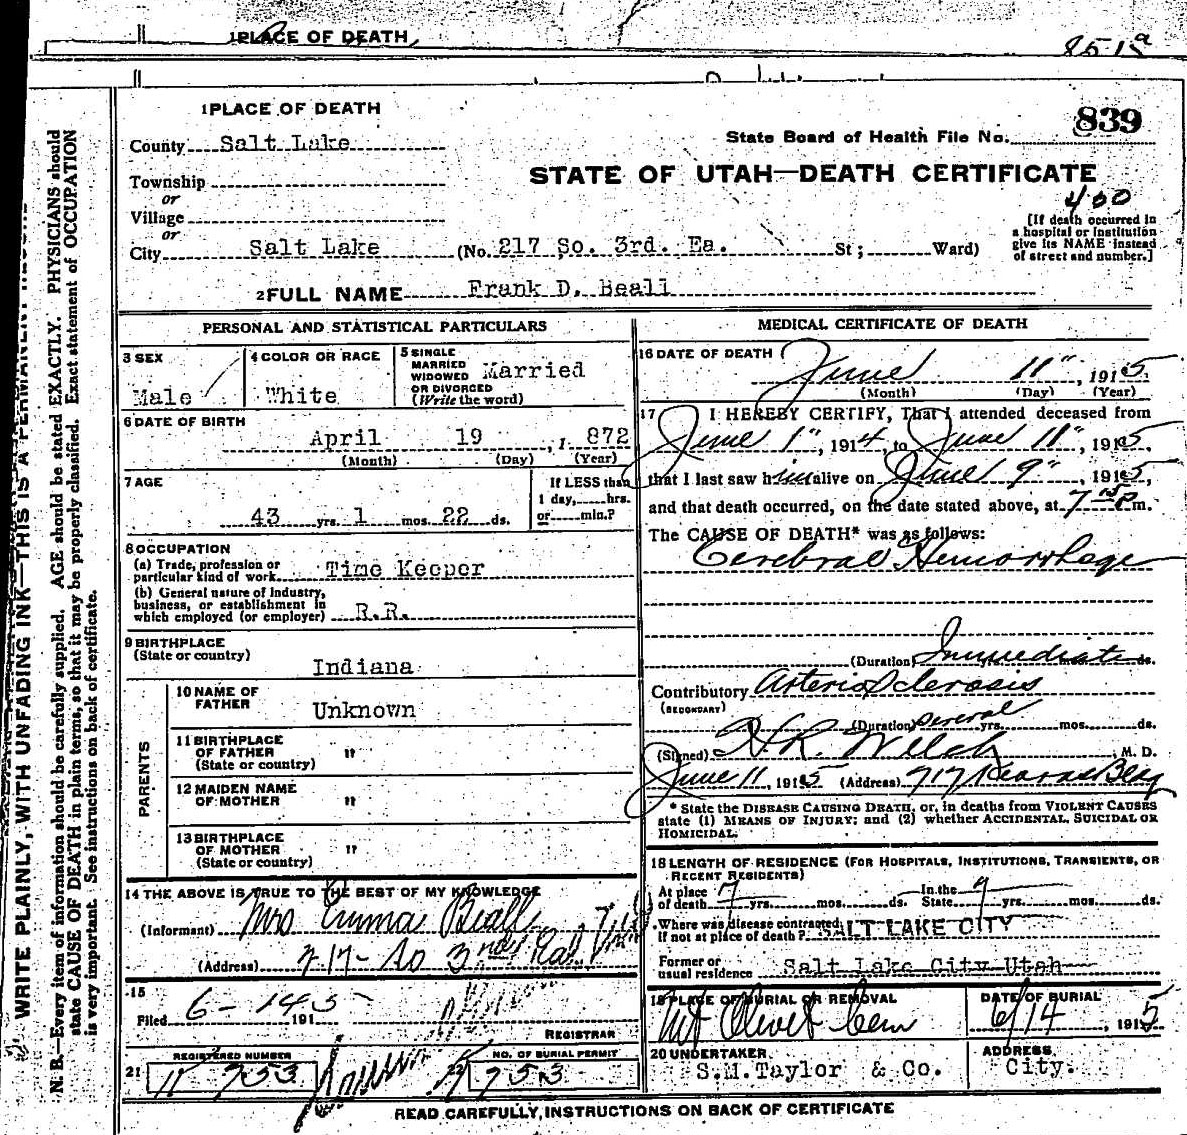 1 PLACE OF DEATH
1 PLACE OF DEATH
839
State Board of Health File No.
County Salt Lake
STATE OF UTAH—DEATH CERTIFICATE
Township
or
Village
or
400
[If death occurred in a hospital or institution give its NAME instead of street and number.]
City Salt Lake (No. 217 So. 3rd. Ea. St; Ward)
2 FULL NAME Frank D. Beall
PERSONAL AND STATISTICAL PARTICULARS
3 SEX
Male
4 COLOR OR RACE
White
5 SINGLE
MARRIED
WIDOWED
OR DIVORCED
(Write the word)
Married
6 DATE OF BIRTH
April 19, 1872
(Month) (Day) (Year)
7 AGE
43 yrs. 1 mos. 22 ds.
If LESS than
1 day, hrs.
or min.?
8 OCCUPATION
(a) Trade, profession or
particular kind of work Time Keeper
(b) General nature of Industry,
business, or establishment in
which employed (or employer) R.R.
9 BIRTHPLACE
(State or country)
Indiana
PARENTS
10 NAME OF
FATHER
Unknown
11 BIRTHPLACE
OF FATHER "
(State or country)
12 MAIDEN NAME
OF MOTHER "
13 BIRTHPLACE
OF MOTHER "
(State or country)
14 THE ABOVE IS TRUE TO THE BEST OF MY KNOWLEDGE
(Informant) Mrs Emma Beall
(Address) 217 - So 3rd East
15
Filed 6-14 1915
REGISTRAR
21 REGISTERED NUMBER
753
22 NO. OF BURIAL PERMIT
753
MEDICAL CERTIFICATE OF DEATH
16 DATE OF DEATH
June 11", 1915
(Month) (Day) (Year)
17 I HEREBY CERTIFY, That I attended deceased from
June 1", 1914, to June 11", 1915,
that I last saw him alive on June 9", 1915,
and that death occurred, on the date stated above, at 7 15 P m.
The CAUSE OF DEATH* was as follows:
Cerebral Hemorrhage
(Duration) Immediate ds.
Contributory Arterio Sclerosis
(SECONDARY)
(Duration) several yrs. mos. ds.
(Signed) H. R. Welch, M. D.
June 11, 1915 (Address) 717 Kearns Bldg
* State the DISEASE CAUSING DEATH, or, in deaths from VIOLENT CAUSES
state (1) MEANS OF INJURY; and (2) whether ACCIDENTAL, SUICIDAL OR
HOMICIDAL.
18 LENGTH OF RESIDENCE (FOR HOSPITALS, INSTITUTIONS, TRANSIENTS, OR
RECENT RESIDENTS)
At place
of death yrs. mos. ds. In the State 9 yrs. mos. ds.
Where was disease contracted,
If not at place of death? SALT LAKE CITY
Former or
usual residence Salt Lake City Utah
19 PLACE OF BURIAL OR REMOVAL
Mt Olivet Cem
DATE OF BURIAL
6/14, 1915
20 UNDERTAKER
S.M. Taylor & Co.
ADDRESS
City.
READ CAREFULLY, INSTRUCTIONS ON BACK OF CERTIFICATE
WRITE PLAINLY, WITH UNFADING INK—THIS IS A PERMANENT
N. B.—Every item of information should be carefully supplied. AGE should be stated EXACTLY. PHYSICIANS should
state CAUSE OF DEATH in plain terms, so that it may be properly classified. Exact statement of OCCUPATION
is very important. See instructions on back of certificate.